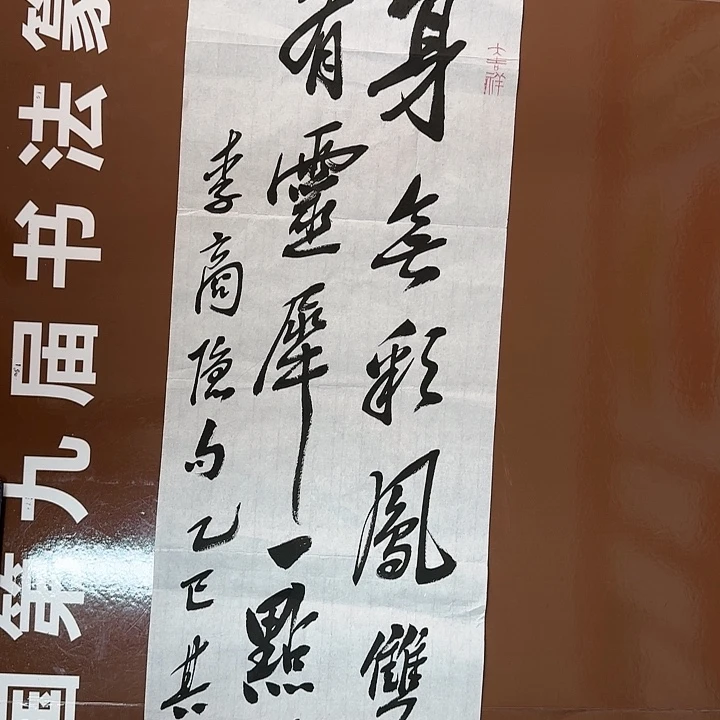 大吉祥
身無彩鳳雙
有靈犀一點
李商隐句乙巳其
国第九届书法篆